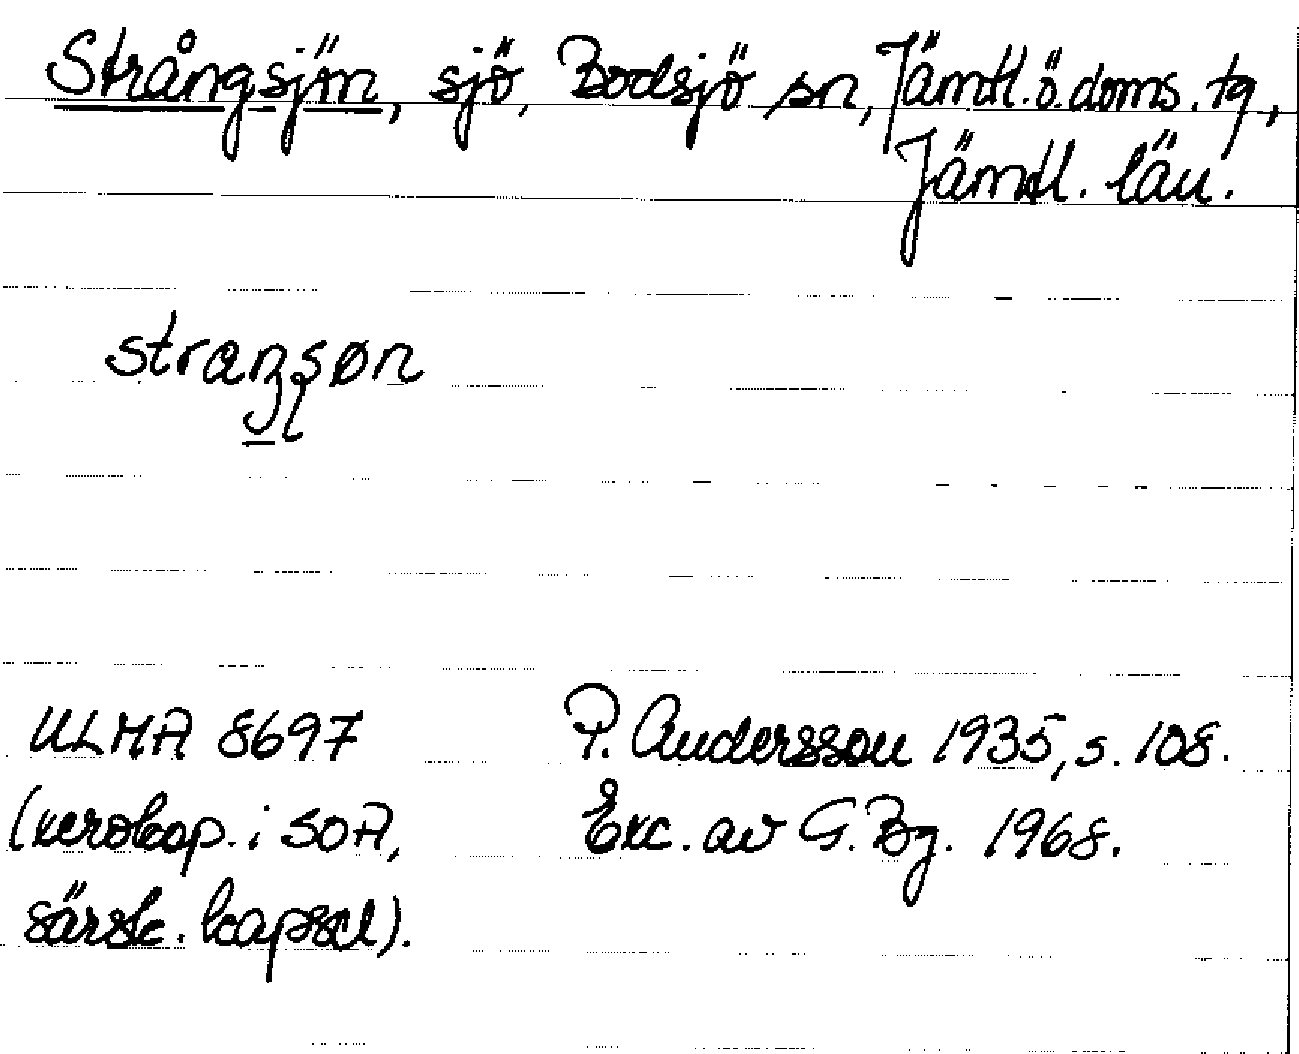 Strångsjön, sjö, Bodsjö sn, Jämtl. ö. doms. tg,
Jämtl. län.
ULMA 8697 P. Andersson 1935, s. 108.
(xerokop. i SOA, Exc. av G. Bg. 1968.
särsk. kapsel).